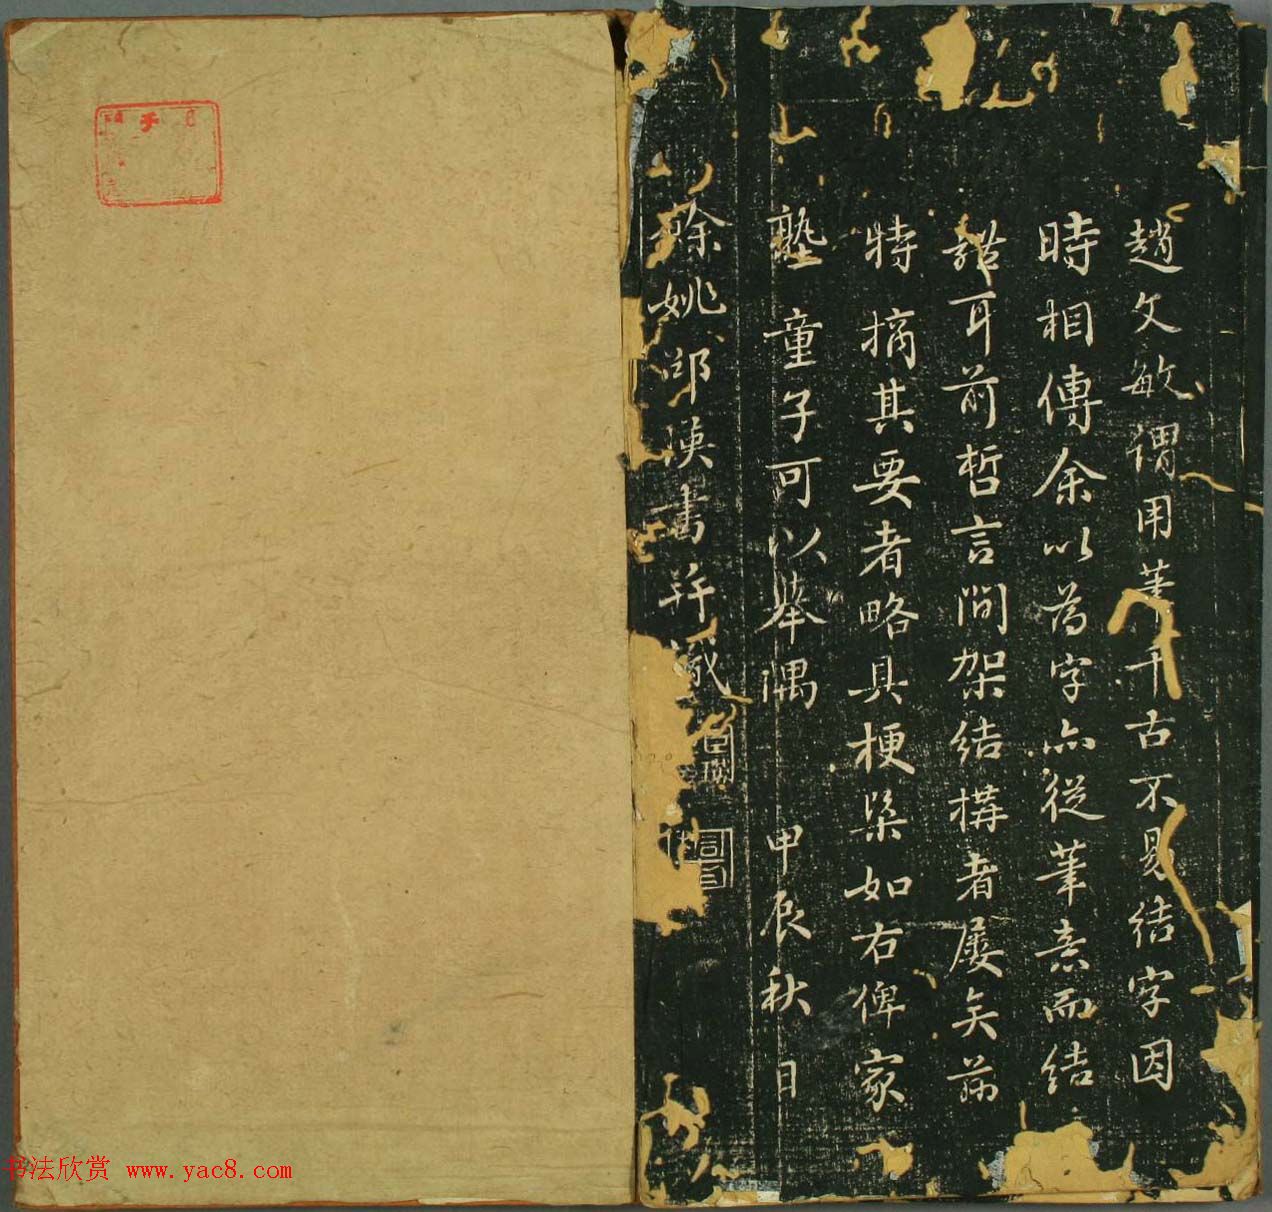 趙文敏謂用筆千古不易結字因
時相傳余以爲字亦從筆意而結
詎耳前哲言間架結構者屢矣茲
特摘其要者略具梗槩如右俾家
塾童子可以舉隅 甲辰秋日
餘姚邵瑛書并識
书法欣赏 www.yac8.com